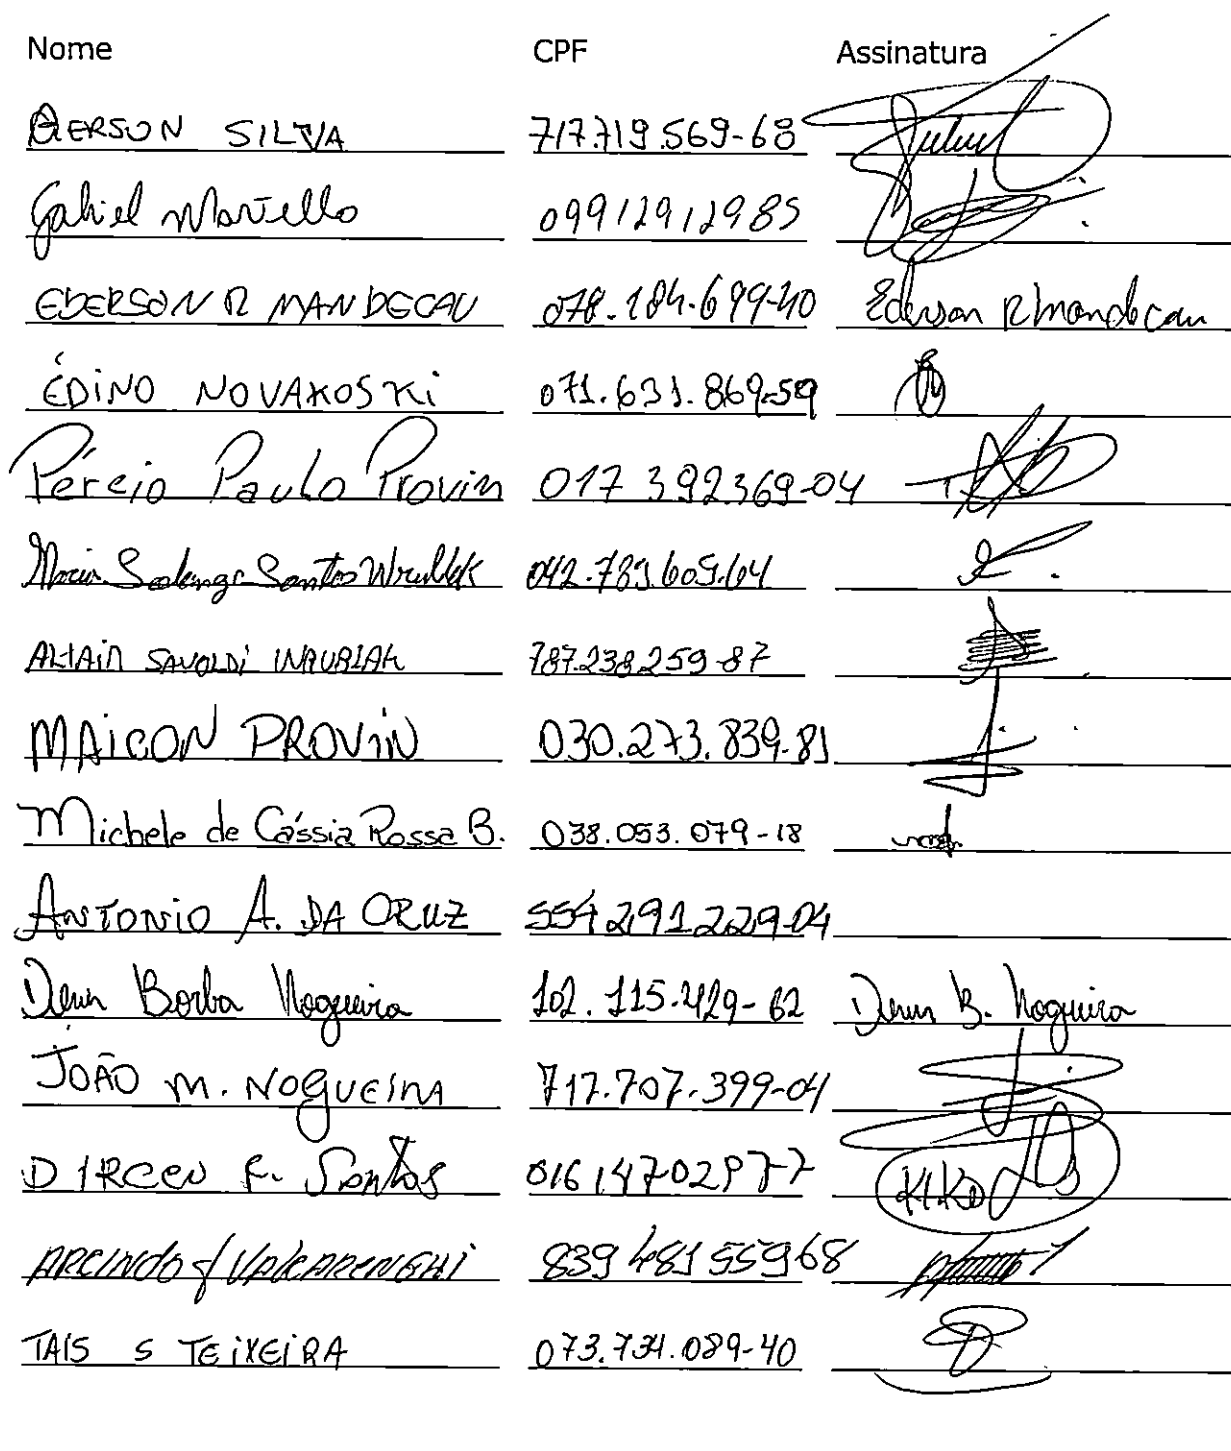 Nome CPF Assinatura
GERSON SILVA 717.719.569-68
Gabriel Martello 09912912985
EDERSON R MANDECAU 078.184.699-40 Ederson R Mandecau
ÉDINO NOVAKOSKI 071.631.869-59
Pércio Paulo Provin 017 392369-04
Maria Solange Santos 042.783.609.64
ALTAIR SAVOLDI WRUBLAK 787.238.259-87
MAICON PROVIN 030.273.839-81
Michele de Cássia Rossa B. 038.053.079-18
ANTONIO A. DA CRUZ 554.291.229-04
Borba Nogueira 102.115.429-62 B. Nogueira
JOÃO M. NOGUEIRA 717.707.399-04
DIRCEU F. Santos 01614702977 KIKO
ARCINDO J VALCARENGHI 839 481 559 68
TAIS S TEIXEIRA 073.734.089-40